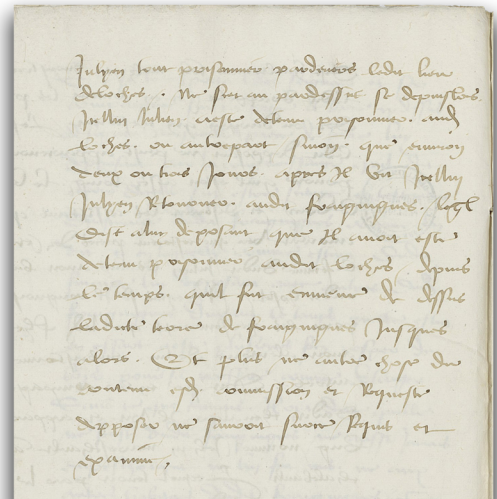 Julyen tout prisonnier pardevers ledit lieu
de loches. Ne scet au pardessus se depuis lors
Icelluy Julien a este detenu prisonnier audit
loches. ou autrepart sinon que environ
deux ou trois Jours apres Il vit Icelluy
Julyen Retourner audit fougingnes. lequel
dist aluy deposant que Il avoit este
detenu prisonnier audit loches, depuis
le temps quil fut enmene de dessus
ladicte terre de fougingnes Jusques
alors. Et plus ne autre chose du
contenu esdictes commission et Requeste
depposer ne savoit sur ce Requis et
examiné,